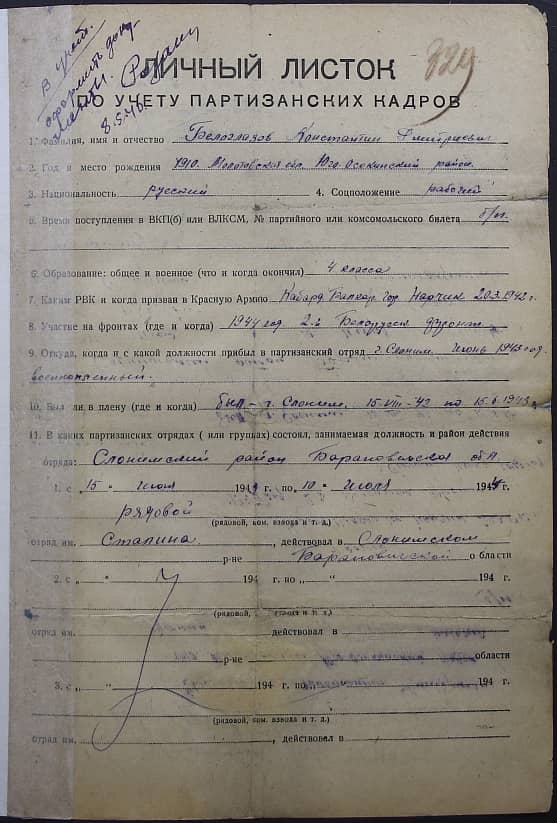 В учёт.
оформить док
8.5.46.
329
ЛИЧНЫЙ ЛИСТОК
ПО УЧЕТУ ПАРТИЗАНСКИХ КАДРОВ
1. Фамилия, имя и отчество Белоглазов Константин Дмитриевич
2. Год и место рождения 1910. Молотовская обл. Юго-Осокинский район.
3. Национальность русский 4. Соцположение рабочий
5. Время поступления в ВКП(б) или ВЛКСМ, № партийного или комсомольского билета б/п.
6. Образование: общее и военное (что и когда окончил) 4 класса
7. Каким РВК и когда призван в Красную Армию Кабард. Балкар. гор. Нальчик 1942 г.
8. Участие на фронтах (где и когда) 1944 год 2-й Белорусск фронт.
9. Откуда, когда и с какой должности прибыл в партизанский отряд г. Слоним. Июнь 1943 год.
военнопленный.
10. Был ли в плену (где и когда) был – г. Слоним, 15-VIII-42 по 15.6.1943 г.
11. В каких партизанских отрядах ( или группах) состоял, занимаемая должность и район действия
отряда: Слонимский район Барановичская обл
1. с „ 15 " июня 1943 г. по „ 10 " июля 1944 г.
рядовой
(рядовой, ком. взвода и т. д.)
отряд им. Сталина. , действовал в Слонимском
р-не Барановичской области
2. с „ " 194 г. по „ " 194 г.
(рядовой, ком. взвода и т. д.)
отряд им. действовал в
р-не области
3. с „ " 194 г. по „ " 194 г.
(рядовой, ком. взвода и т. д.)
отряд им. , действовал в